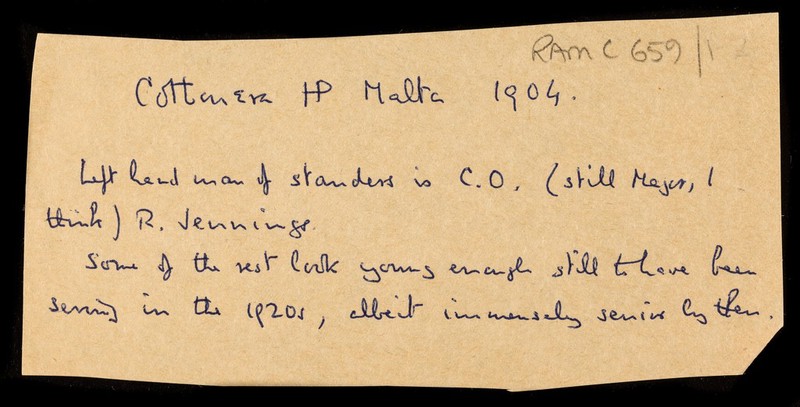 RAMC 659/12
Cottonera HP Malta 1904.
Left hand man of standers is C.O. (still Major, I
think) R. Jennings.
Some of the rest look young enough still to have been
serving in the 1920s, albeit immensely senior by then.